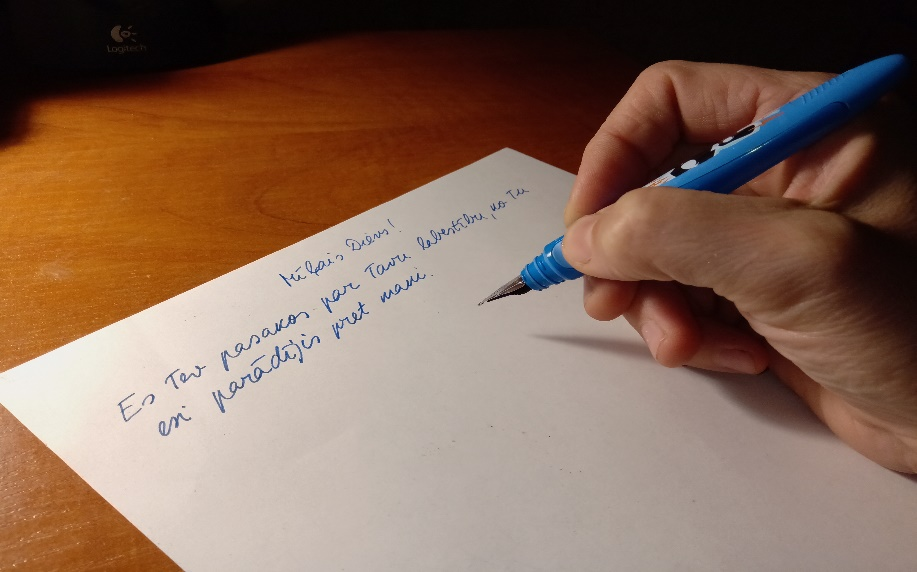 Logitech
Mīļais Dievs!
Es Tev pasakos par Tavu labestību, ko Tu
esi parādījis pret mani.